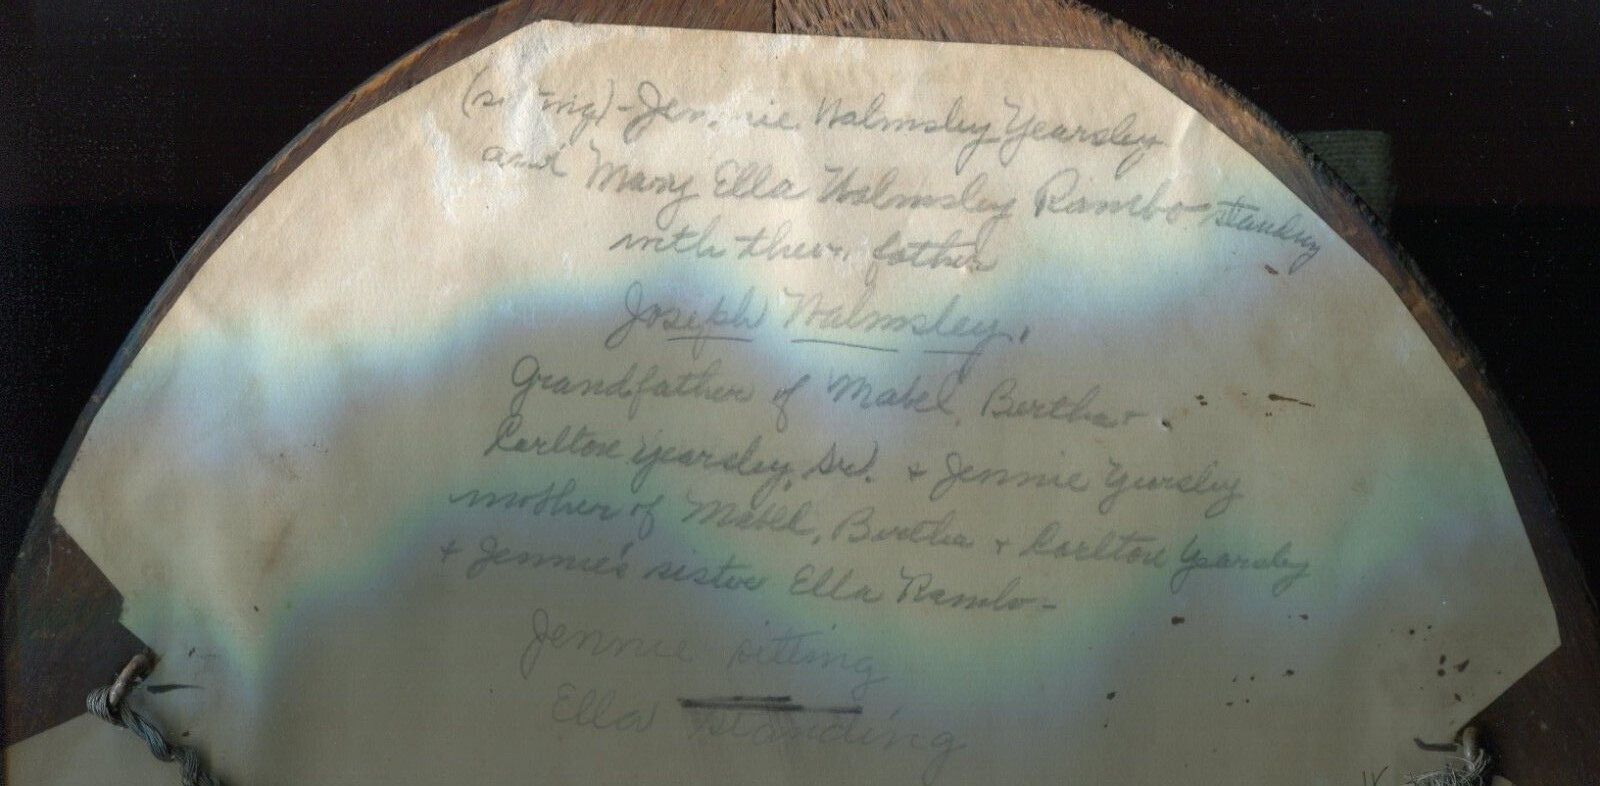 (sitting) - Jennie Walmsley Yearsley
and Mary Ella Walmsley Rambo standing
with their father
Joseph Walmsley.
Grandfather of Mabel, Bertha +
Carlton Yearsley, Sr. + Jennie Yearsley
mother of Mabel, Bertha + Carlton Yearsley
+ Jennie's sister Ella Rambo -
Jennie sitting
Ella standing